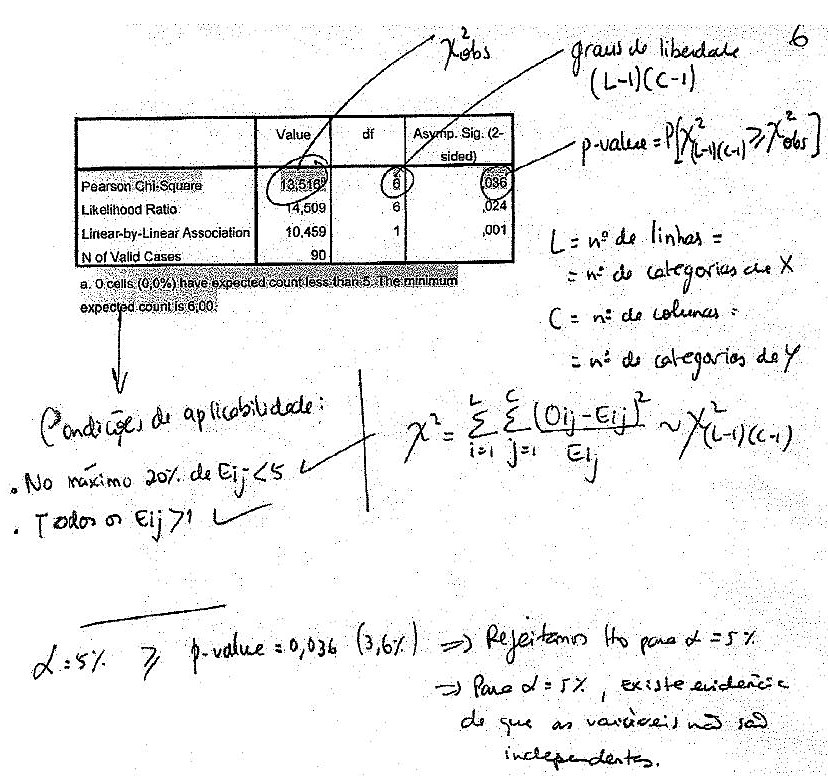 6
χ²obs
graus de liberdade
(L-1)(C-1)
Value df Asymp. Sig. (2-sided)
Pearson Chi-Square 13,516ᵃ 6 ,036
Likelihood Ratio 14,509 6 ,024
Linear-by-Linear Association 10,459 1 ,001
N of Valid Cases 90
p-value = P[χ²(L-1)(C-1) ≥ χ²obs]
a. 0 cells (0,0%) have expected count less than 5. The minimum
expected count is 6,00.
L = nº de linhas =
= nº de categorias de X
C = nº de colunas =
= nº de categorias de Y
Condições de aplicabilidade:
. No máximo 20% de Eij < 5 ✓
. Todos os Eij > 1 ✓
χ² = Σ(i=1, L) Σ(j=1, C) (Oij - Eij)² / Eij ~ χ²(L-1)(C-1)
α = 5% ≥ p-value = 0,036 (3,6%) => Rejeitamos Ho para α = 5%
=> Para α = 5%, existe evidência
de que as variáveis não são
independentes.